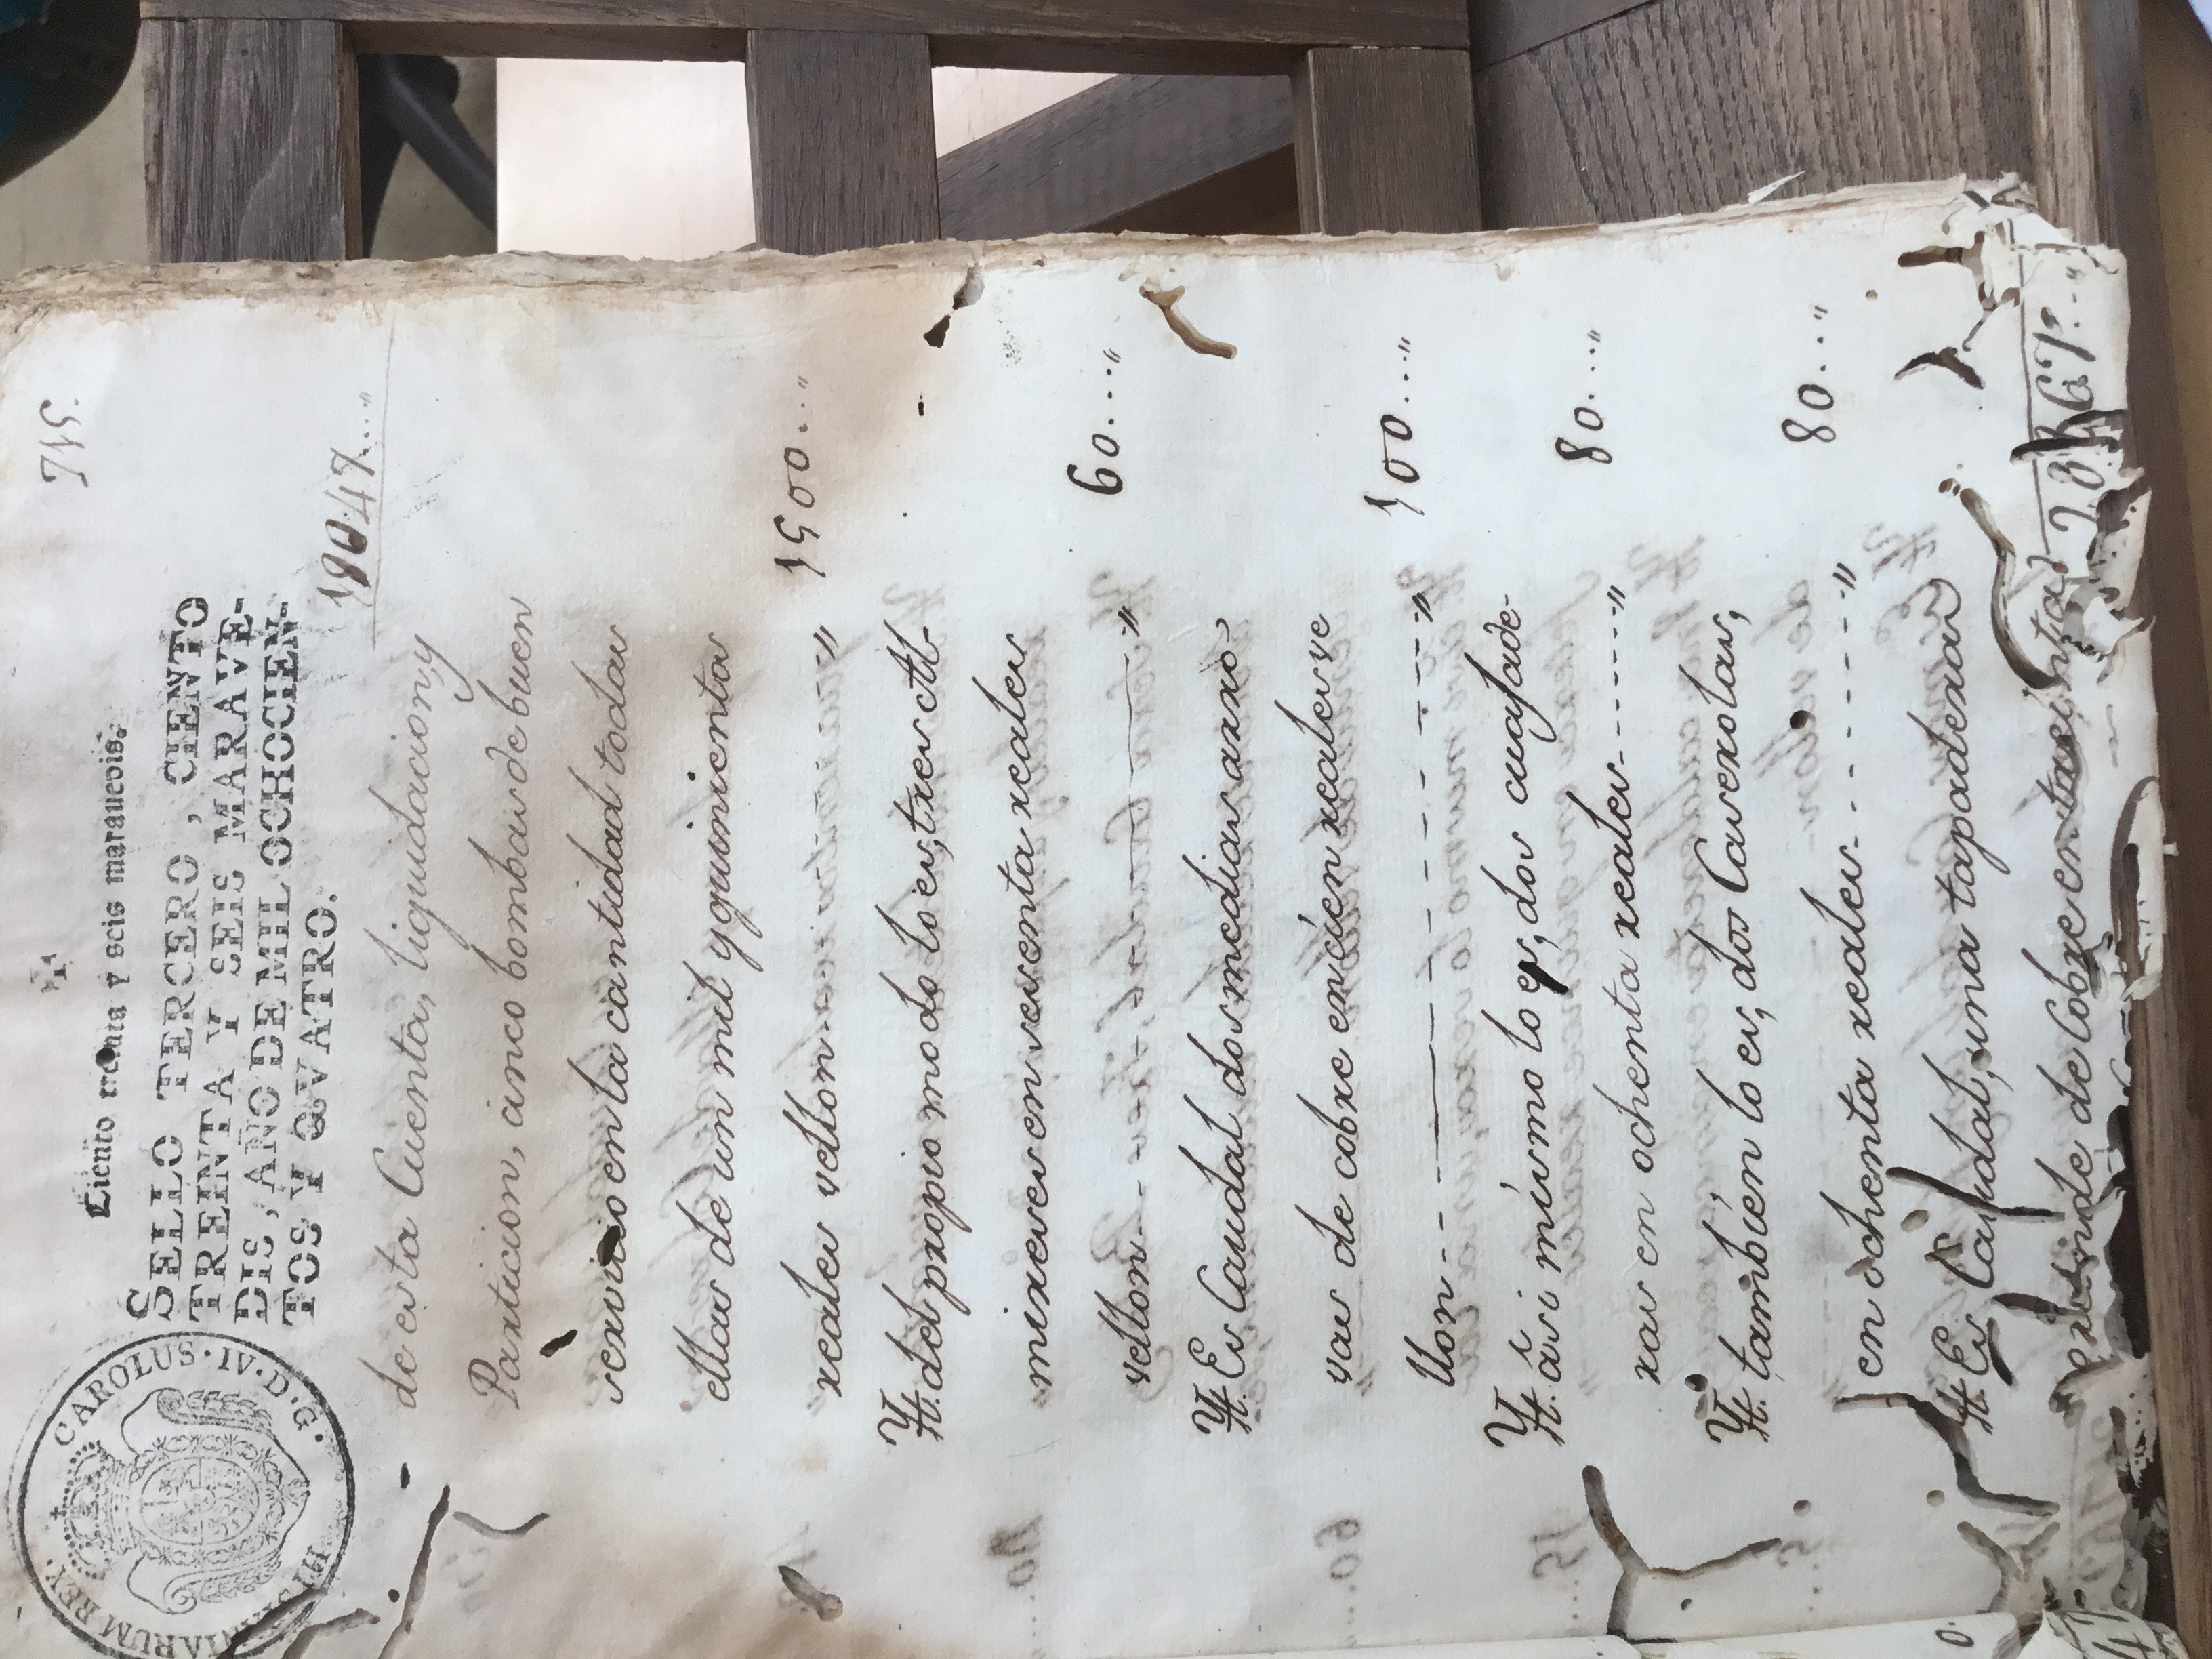 715.
Ciento treinta y seis maravedis.
SELLO TERCERO, CIENTO
TREINTA Y SEIS MARAVE-
DIS, AÑO DE MIL OCHOCIEN-
TOS Y QVATRO.
CAROLUS·IV·D·G· HISPANIARUM REX
19047...."
de esta Cuenta, liquidacion, y
Particion, cinco bombas de buen
servicio en la cantidad todas
ellas de un mil y quinienta
reales vellon " 1500..."
Yt. del propio modo lo es, tres Al-
mireses en sesenta reales
vellon " 60...."
Yt. Es Caudal dos medias arro-
vas de cobre en cien reales ve
llon " 100...."
Yt. asi mismo lo es, dos cuajade-
ras en ochenta reales " 80...."
Yt. tambien lo es, dos Caserolas,
en ochenta reales " 80...."
Yt. Es Caudal, una tapadera
grande de Cobre en treinta